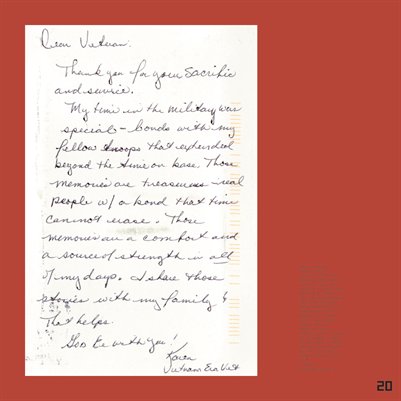 Dear Veteran.
Thank you for your Sacrifice
and service.
My time in the military was
special - bonds with my
fellow troops that extended
beyond the time on base. Those
memories are treasures - real
people w/ a bond that time
cannot erase. Those
memories are a comfort and
a source of strength in all
of my days. I share those
stories with my family &
that helps.
God be with you!
Karen
Vietnam Era Vet
20